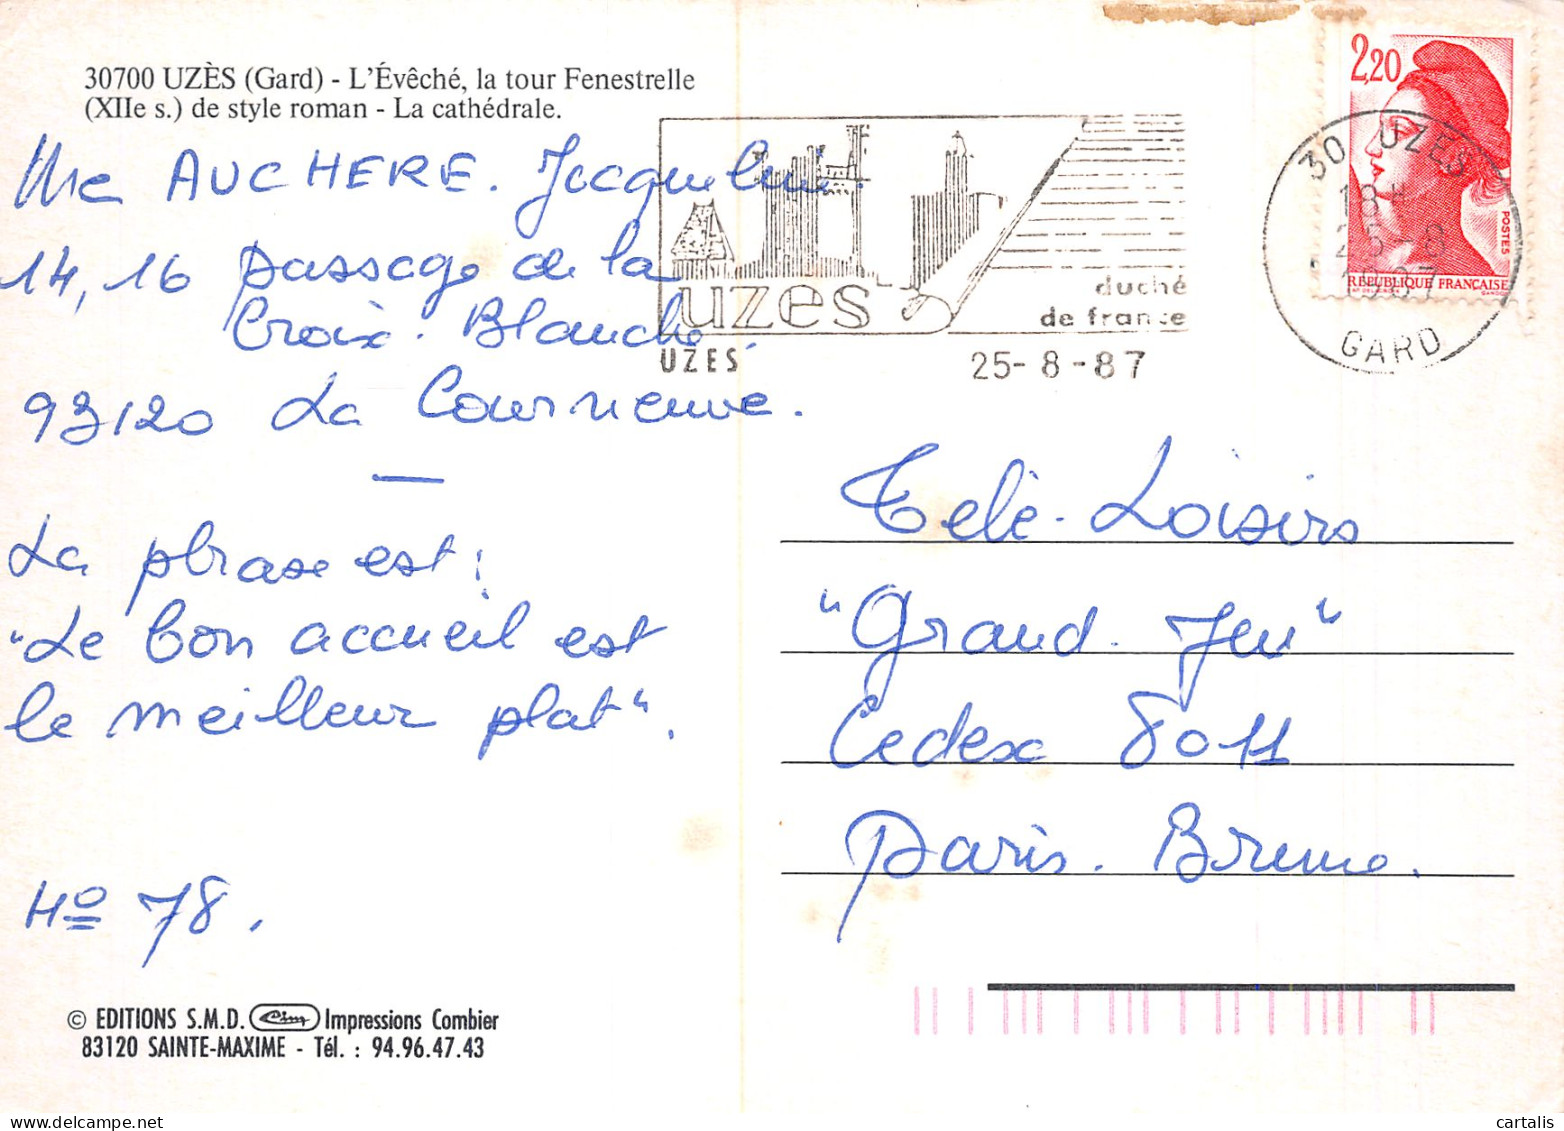 30700 UZÈS (Gard) - L'Évêché, la tour Fenestrelle
(XIIe s.) de style roman - La cathédrale.
Me AUCHERE. Jacqueline.
14, 16 passage de la
Croix. Blanche.
93120 La Courneuve.
La phrase est :
"Le bon accueil est
le meilleur plat".
No 78.
© EDITIONS S.M.D. Cim Impressions Combier
83120 SAINTE-MAXIME - Tél. : 94.96.47.43
uzes
duché
de france
UZES 25-8-87
2,20
POSTES
REPUBLIQUE FRANÇAISE
30 UZES
18H
25-8
1987
GARD
Télé-Loisirs
"Grand. Jeu"
Cedex 8011
Paris. Brune.
cartalis